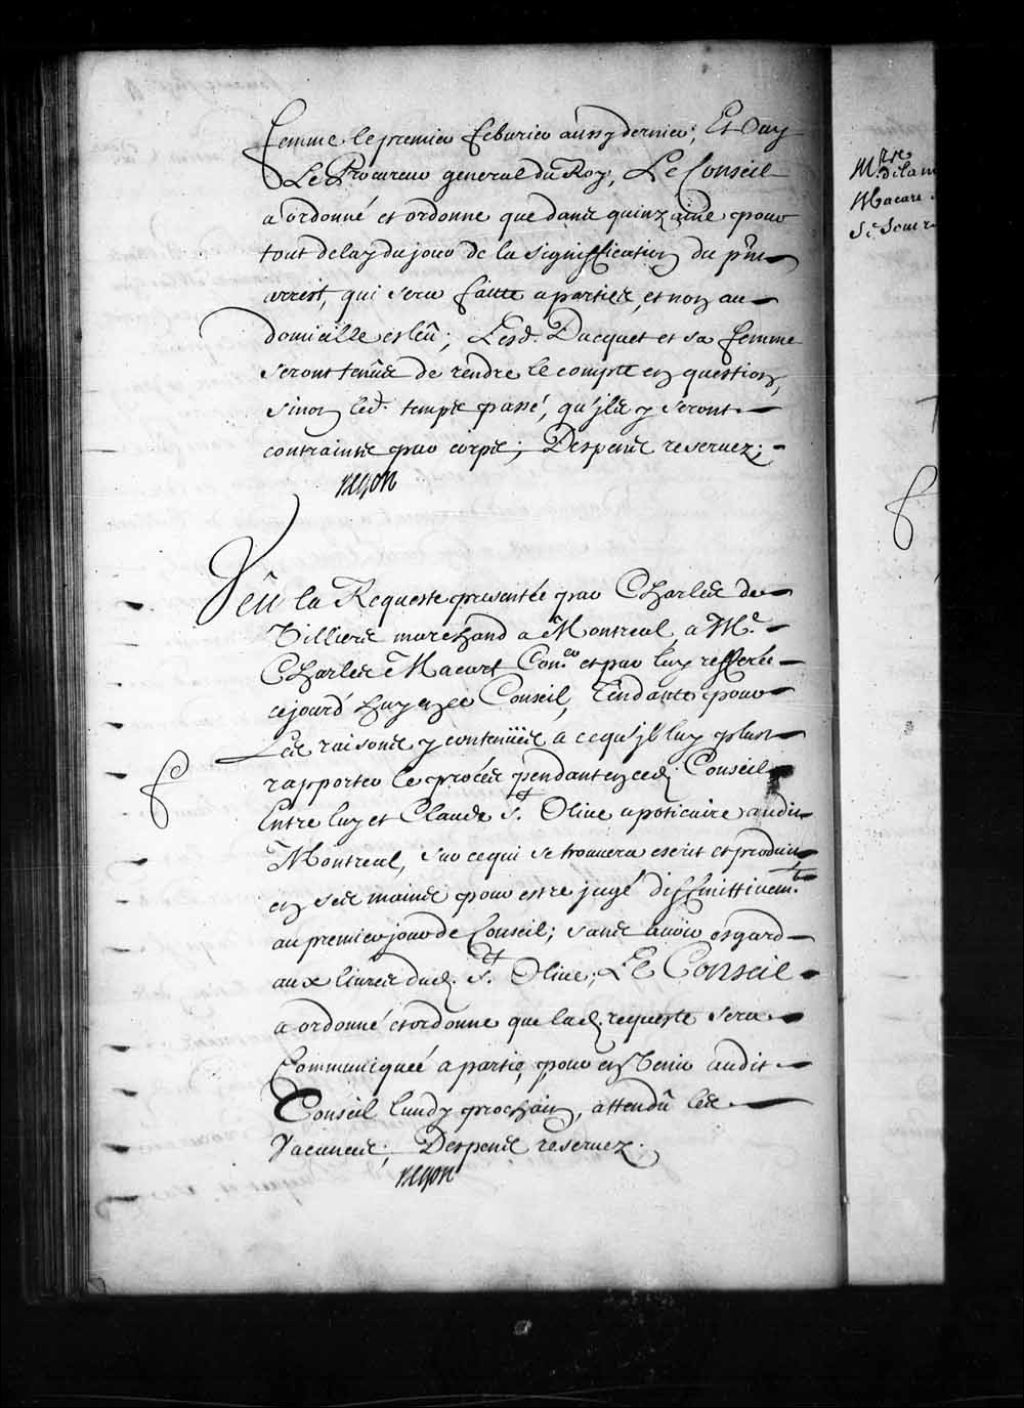 femme le premier febvrier aussy dernier; Et Ouy
Le Procureur general du Roy, Le Conseil
a ordonné et ordonne que dans quinzaine pour
tout delay du jour de la signiffication du p̄nt
arrest, qui sera faitte a parties, et non au
domicille esleu; Lesd. Dacquet et sa femme
seront tenûs de rendre le compte en question,
sinon led. temps passé, qu'jls y seront
contrains par corps; Despens reservez;
Begon
Veû la Requeste presentée par Charles de
Villiers marchand a Montreal, a Me.
Charles Macart Coner. et par luy refferée
cejourd'huy en ce Conseil, Tendante pour
Les raisons y contenües a ce qu'jl luy plust
rapporter le procés pendant en ced. Conseil
Entre luy et Claude St. Olive apoticaire audit
Montreal, sur ce qui se trouvera escrit et produit
en ses mains pour estre jugé diffinittivemt.
au premier jour de Conseil; sans avoir esgard
aux livres dud. St. Olive; LE Conseil
a ordonné et ordonne que lad. requeste sera
Communiquée a partie, pour en Venir audit
Conseil lundy prochain, attendû les
Vacances; Despens reservez.
Begon
Macare